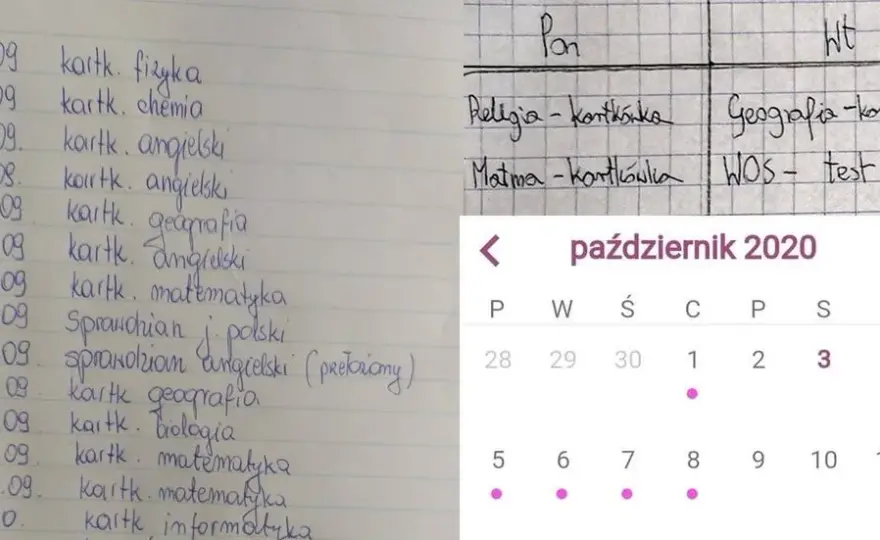 09 kartk. fizyka
09 kartk. chemia
09. kartk. angielski
09. kartk. angielski
09 kartk. geografia
09 kartk. angielski
09 kartk. matematyka
09 Sprawdzian j. polski
09 sprawdzian angielski (przełożony)
09 kartk geografia
09 kartk. biologia
09. kartk. matematyka
.09. kartk. matematyka
0. kartk. informatyka
Pon Wt
Religia - kartkówka Geografia - ko
Matma - kartkówka WOS - test
październik 2020
P W Ś C P S
28 29 30 1 2 3
5 6 7 8 9 10